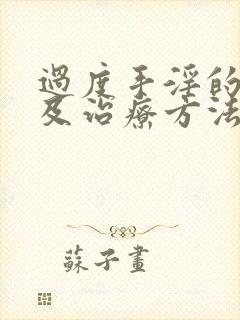 過度手淫的
及治療方法
蘇子畫